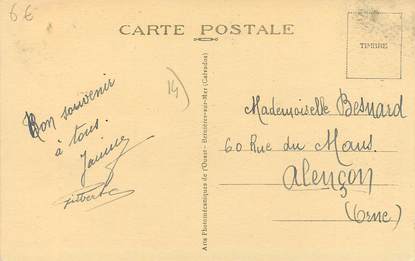 6€
CARTE POSTALE
TIMBRE
14
Bon souvenir
à tous.
Janine
Gilberte
Arts Photomécaniques de l'Ouest - Bernières-sur-Mer (Calvados)
Mademoiselle Besnard
60 Rue du Mans.
Alençon
(Orne)